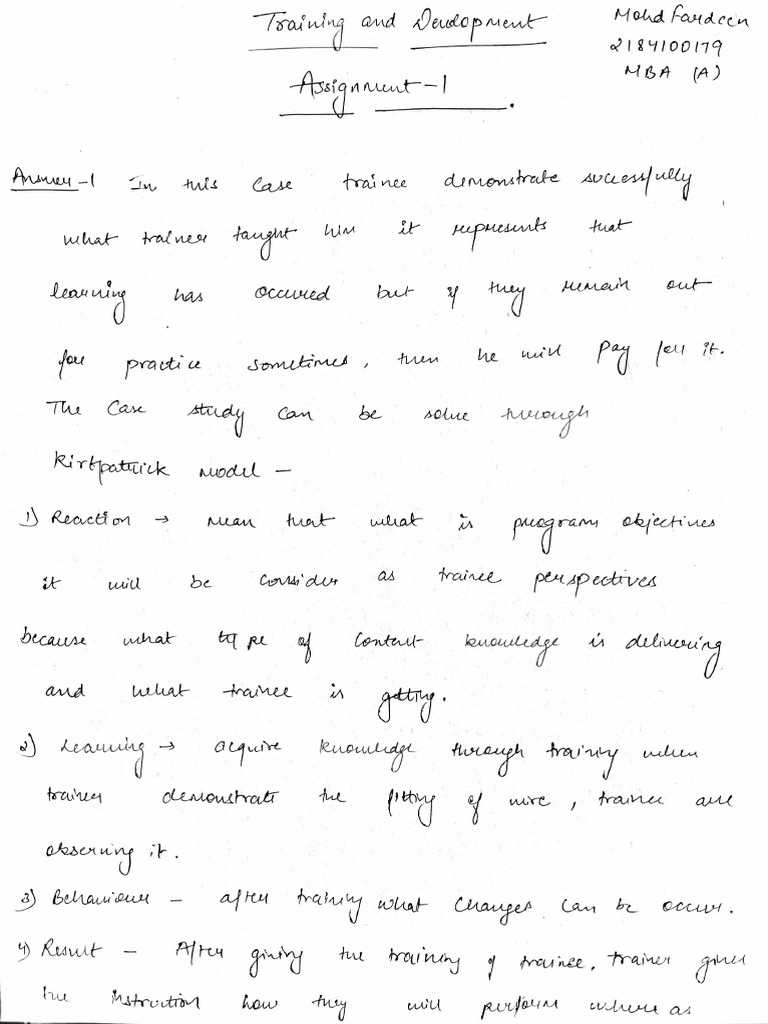 Training and Development
Mohd Fardeen
2184100179
MBA (A)
Assignment-1
Answer-1 In this case trainee demonstrate successfully
what trainer taught him it represents that
learning has occured but if they remain out
for practice sometimes, then he will pay for it.
The Case study can be solve through
Kirtpatrick model -
1) Reaction → Mean that what is program objectives
it will be consider as trainee perspectives
because what type of content knowledge is delivering
and what trainee is getting.
2) Learning → acquire knowledge through training when
trainer demonstrate the fitting of wire, trainee are
observing it.
3) Behaviour - after training what changes can be occur.
4) Result - After giving the training of trainee. Trainer gives
the instruction how they will perform where as